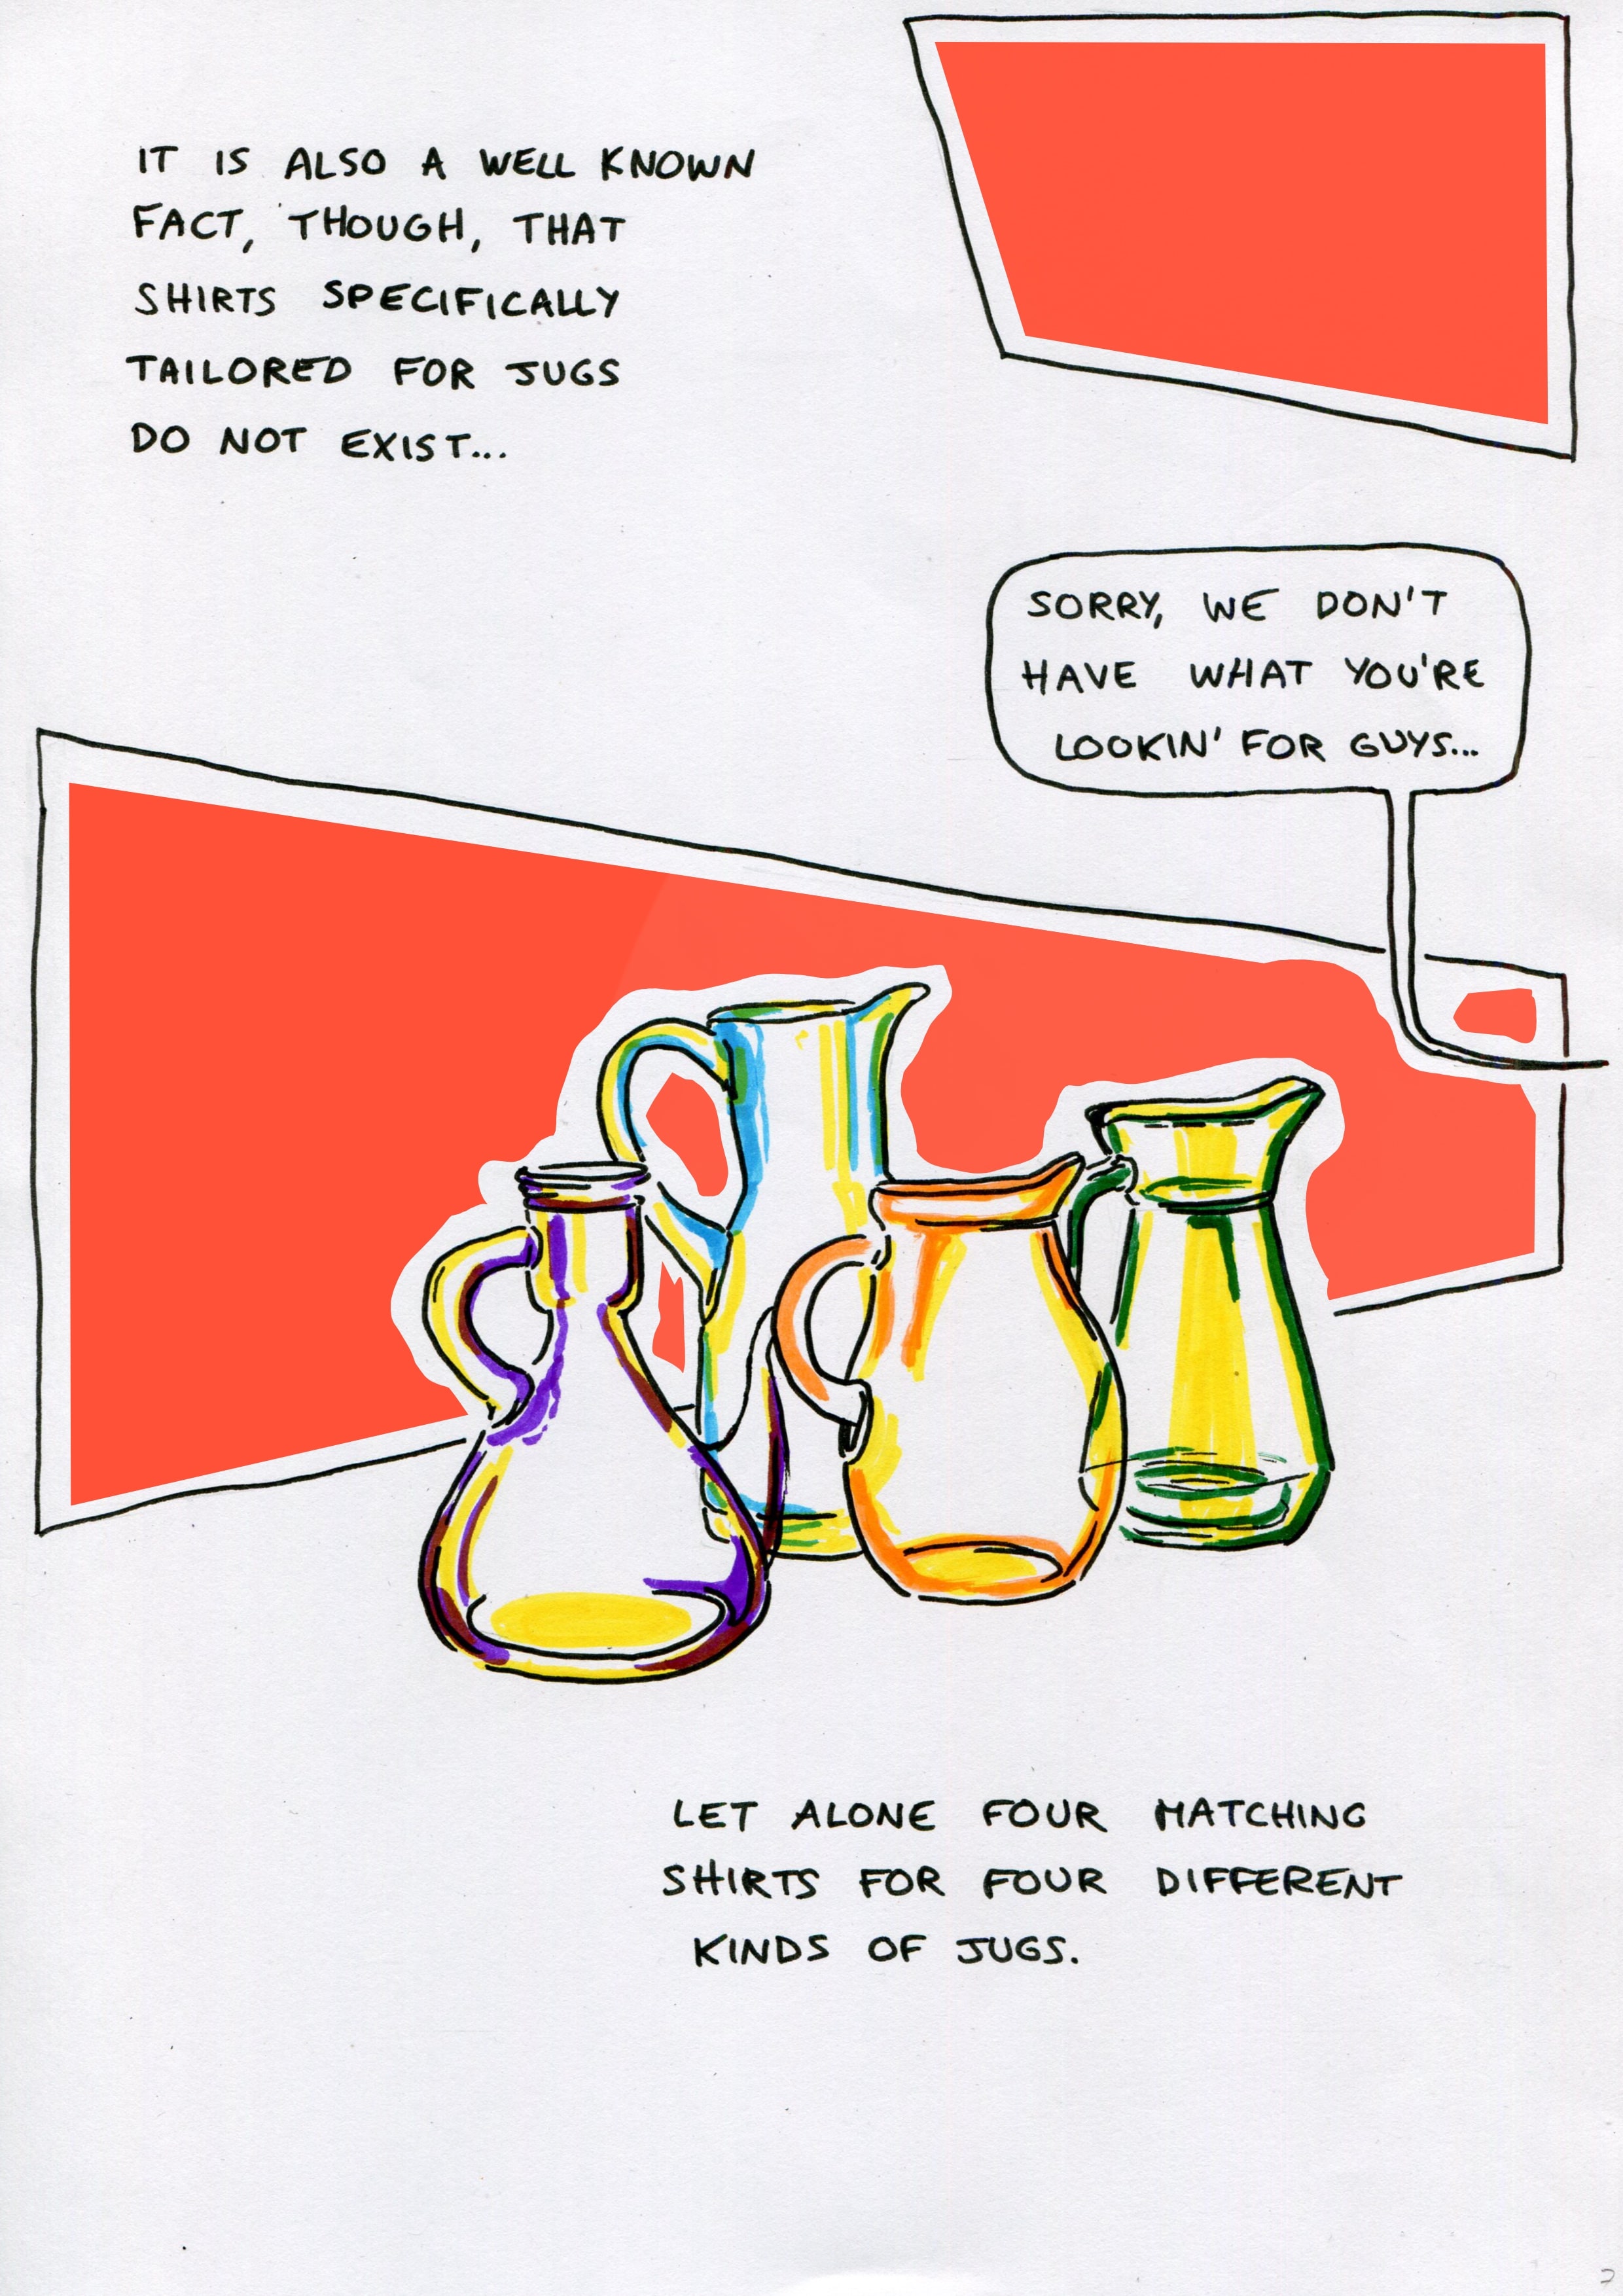 IT IS ALSO A WELL KNOWN
FACT, THOUGH, THAT
SHIRTS SPECIFICALLY
TAILORED FOR JUGS
DO NOT EXIST...
SORRY, WE DON'T
HAVE WHAT YOU'RE
LOOKIN' FOR GUYS...
LET ALONE FOUR MATCHING
SHIRTS FOR FOUR DIFFERENT
KINDS OF JUGS.